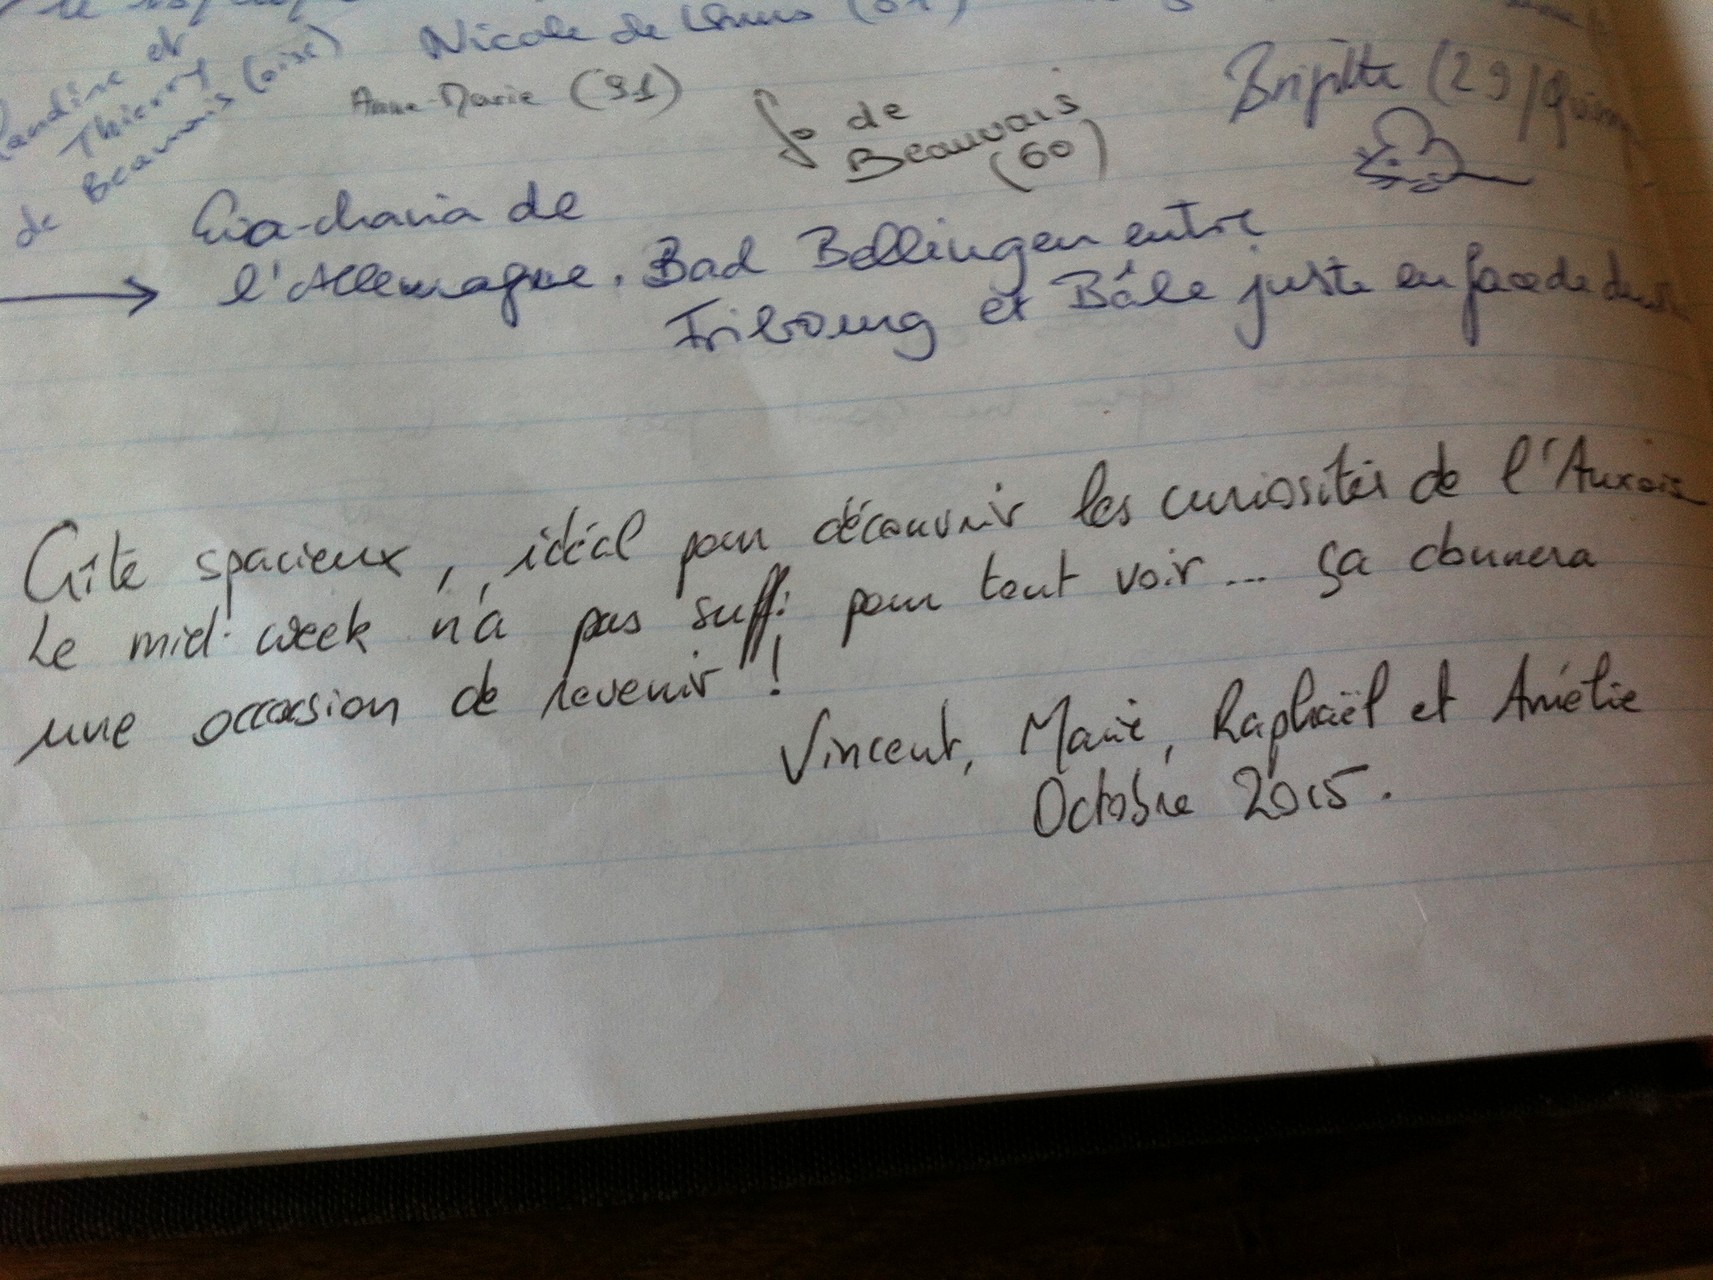 Nicole de
Thierry
de Beauvais (oise)
Anne-Marie (91)
Jo de
Beauvais
(60)
Brigitte (29/Quimp
de
l'Allemagne. Bad Bellingen entre
Fribourg et Bâle juste en face de
Gîte spacieux, idéal pour découvrir les curiosités de l'Auxois
Le mid-week n'a pas suffi pour tout voir... ça donnera
une occasion de revenir !
Vincent, Marie, Raphaël et Amélie
Octobre 2015.